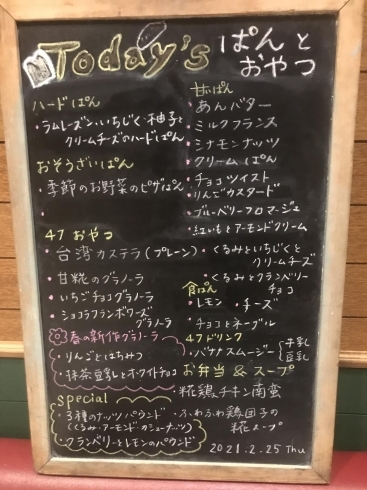 Today's ぱんと
おやつ
ハードぱん
・ラムレーズン・いちじく・柚子と
クリームチーズのハードぱん
おそうざいぱん
・季節のお野菜のピザぱん
・
47 おやつ
・台湾カステラ(プレーン)
・甘糀のグラノーラ
・いちごチョコグラノーラ
・ショコラフランボワーズ
グラノーラ
春の新作グラノーラ
・りんごとはちみつ
・抹茶豆乳とホワイトチョコ
special
・3種のナッツパウンド
(くるみ・アーモンド・カシューナッツ)
・クランベリーとレモンのパウンド
甘いぱん
・あんバター
・ミルクフランス
・シナモンナッツ
・クリームぱん
・チョコツイスト
・りんごカスタード
・ブルーベリーフロマージュ
・紅いもとアーモンドクリーム
・くるみといちじくと
クリームチーズ
・くるみとクランベリー
チョコ
食ぱん
・レモン ・チーズ
・チョコとネーブル
47ドリンク
・バナナスムージー 牛乳
豆乳
お弁当 & スープ
・糀鶏チキン南蛮
・ふわふわ鶏団子の
糀スープ
2021.2.25 Thu